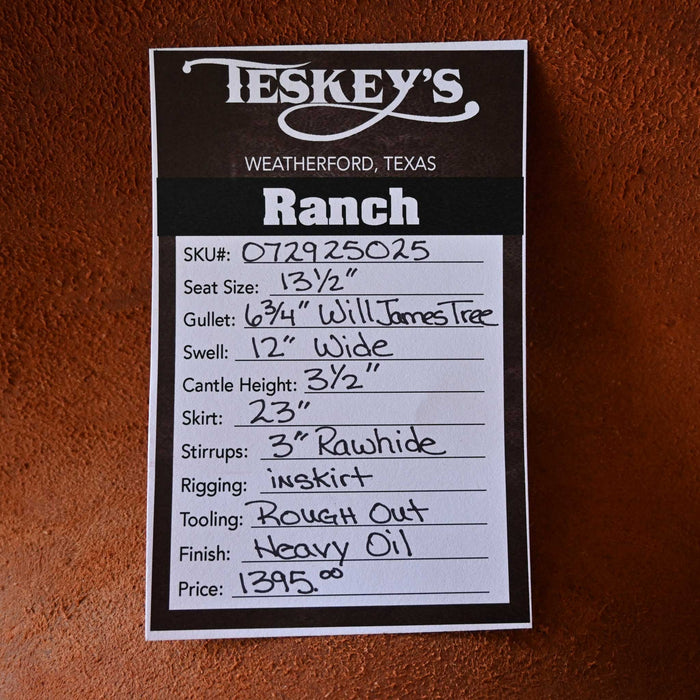 TESKEY'S
WEATHERFORD, TEXAS
Ranch
SKU#: 072925025
Seat Size: 13 1/2"
Gullet: 6 3/4" Will James Tree
Swell: 12" Wide
Cantle Height: 3 1/2"
Skirt: 23"
Stirrups: 3" Rawhide
Rigging: inskirt
Tooling: Rough Out
Finish: Heavy Oil
Price: 1395.00